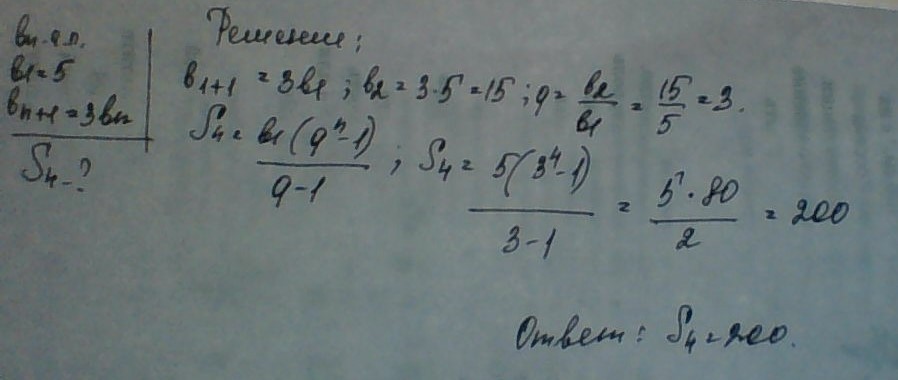 bn - г.п.
b1 = 5
bn+1 = 3bn
S4 - ?
Решение:
b1+1 = 3b1 ; b2 = 3·5 = 15 ; q = b2/b1 = 15/5 = 3.
S4 = b1(q^n - 1)/(q - 1) ; S4 = 5(3^4 - 1)/(3 - 1) = 5·80/2 = 200
Ответ: S4 = 200.